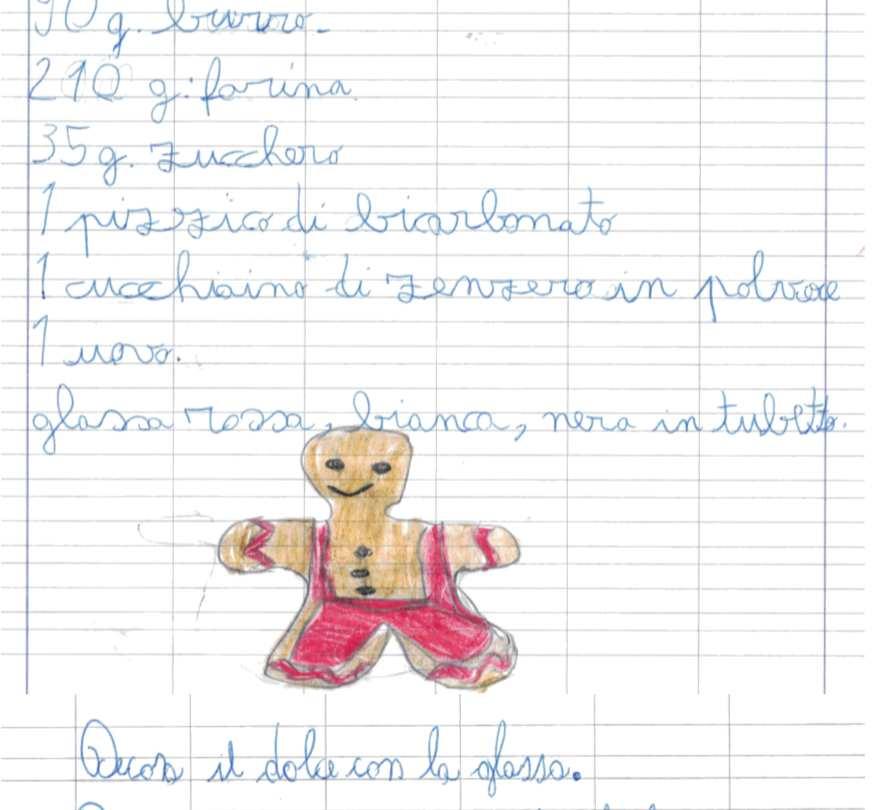 90 g. burro.
210 g. farina
35 g. zucchero
1 pizzico di bicarbonato
1 cucchiaino di zenzero in polvere
1 uovo.
glassa rossa, bianca, nera in tubetto.
Decora il dolce con la glassa.